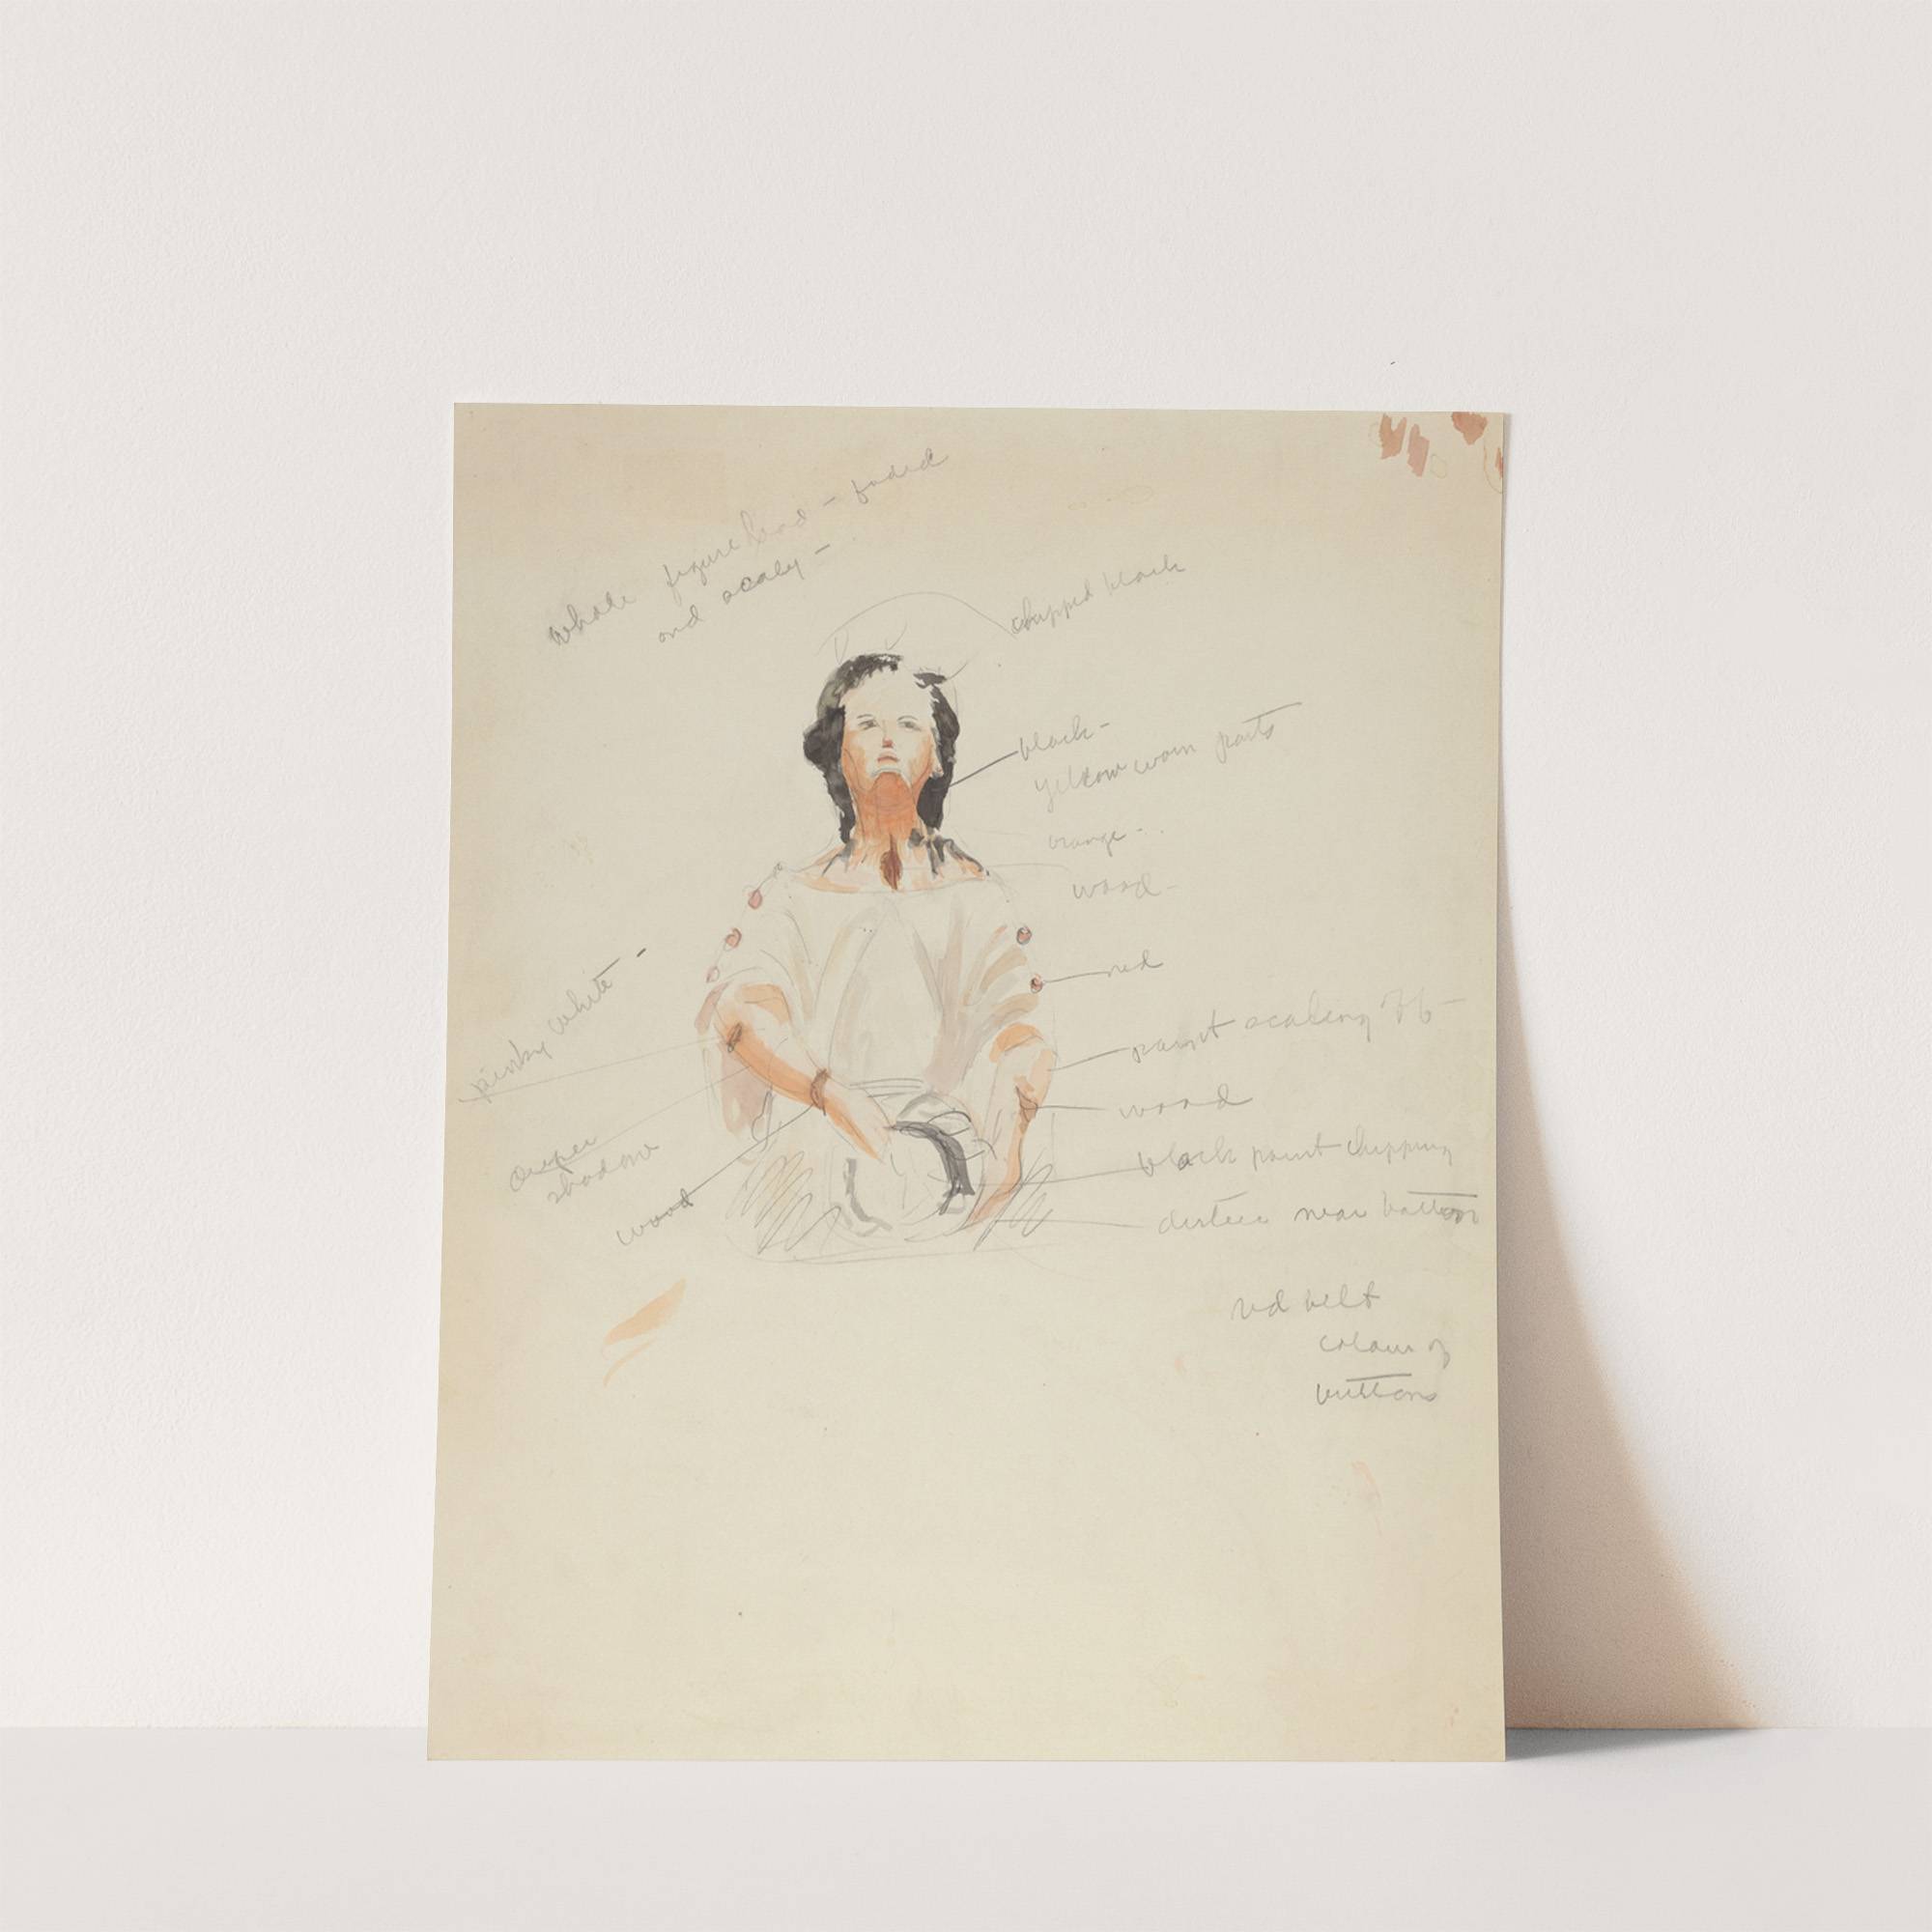 whole figure head - faded
and scaly -
chipped black
black -
yellow worn parts
orange -
wood -
red
pinky white -
paint scaling off
wood
deeper
shadow
black paint chipping
wood
dirtier near bottom
red belt
colour of
buttons